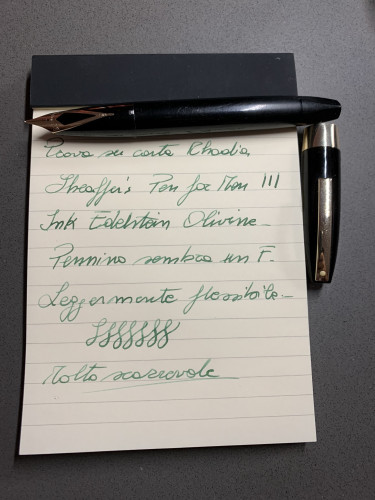 Prova su carta Rhodia
Sheaffer's Pen for Men !!!
Ink Edelstein Olivine
Pennino sembra un F.
Leggermente flessibile
Molto scorrevole